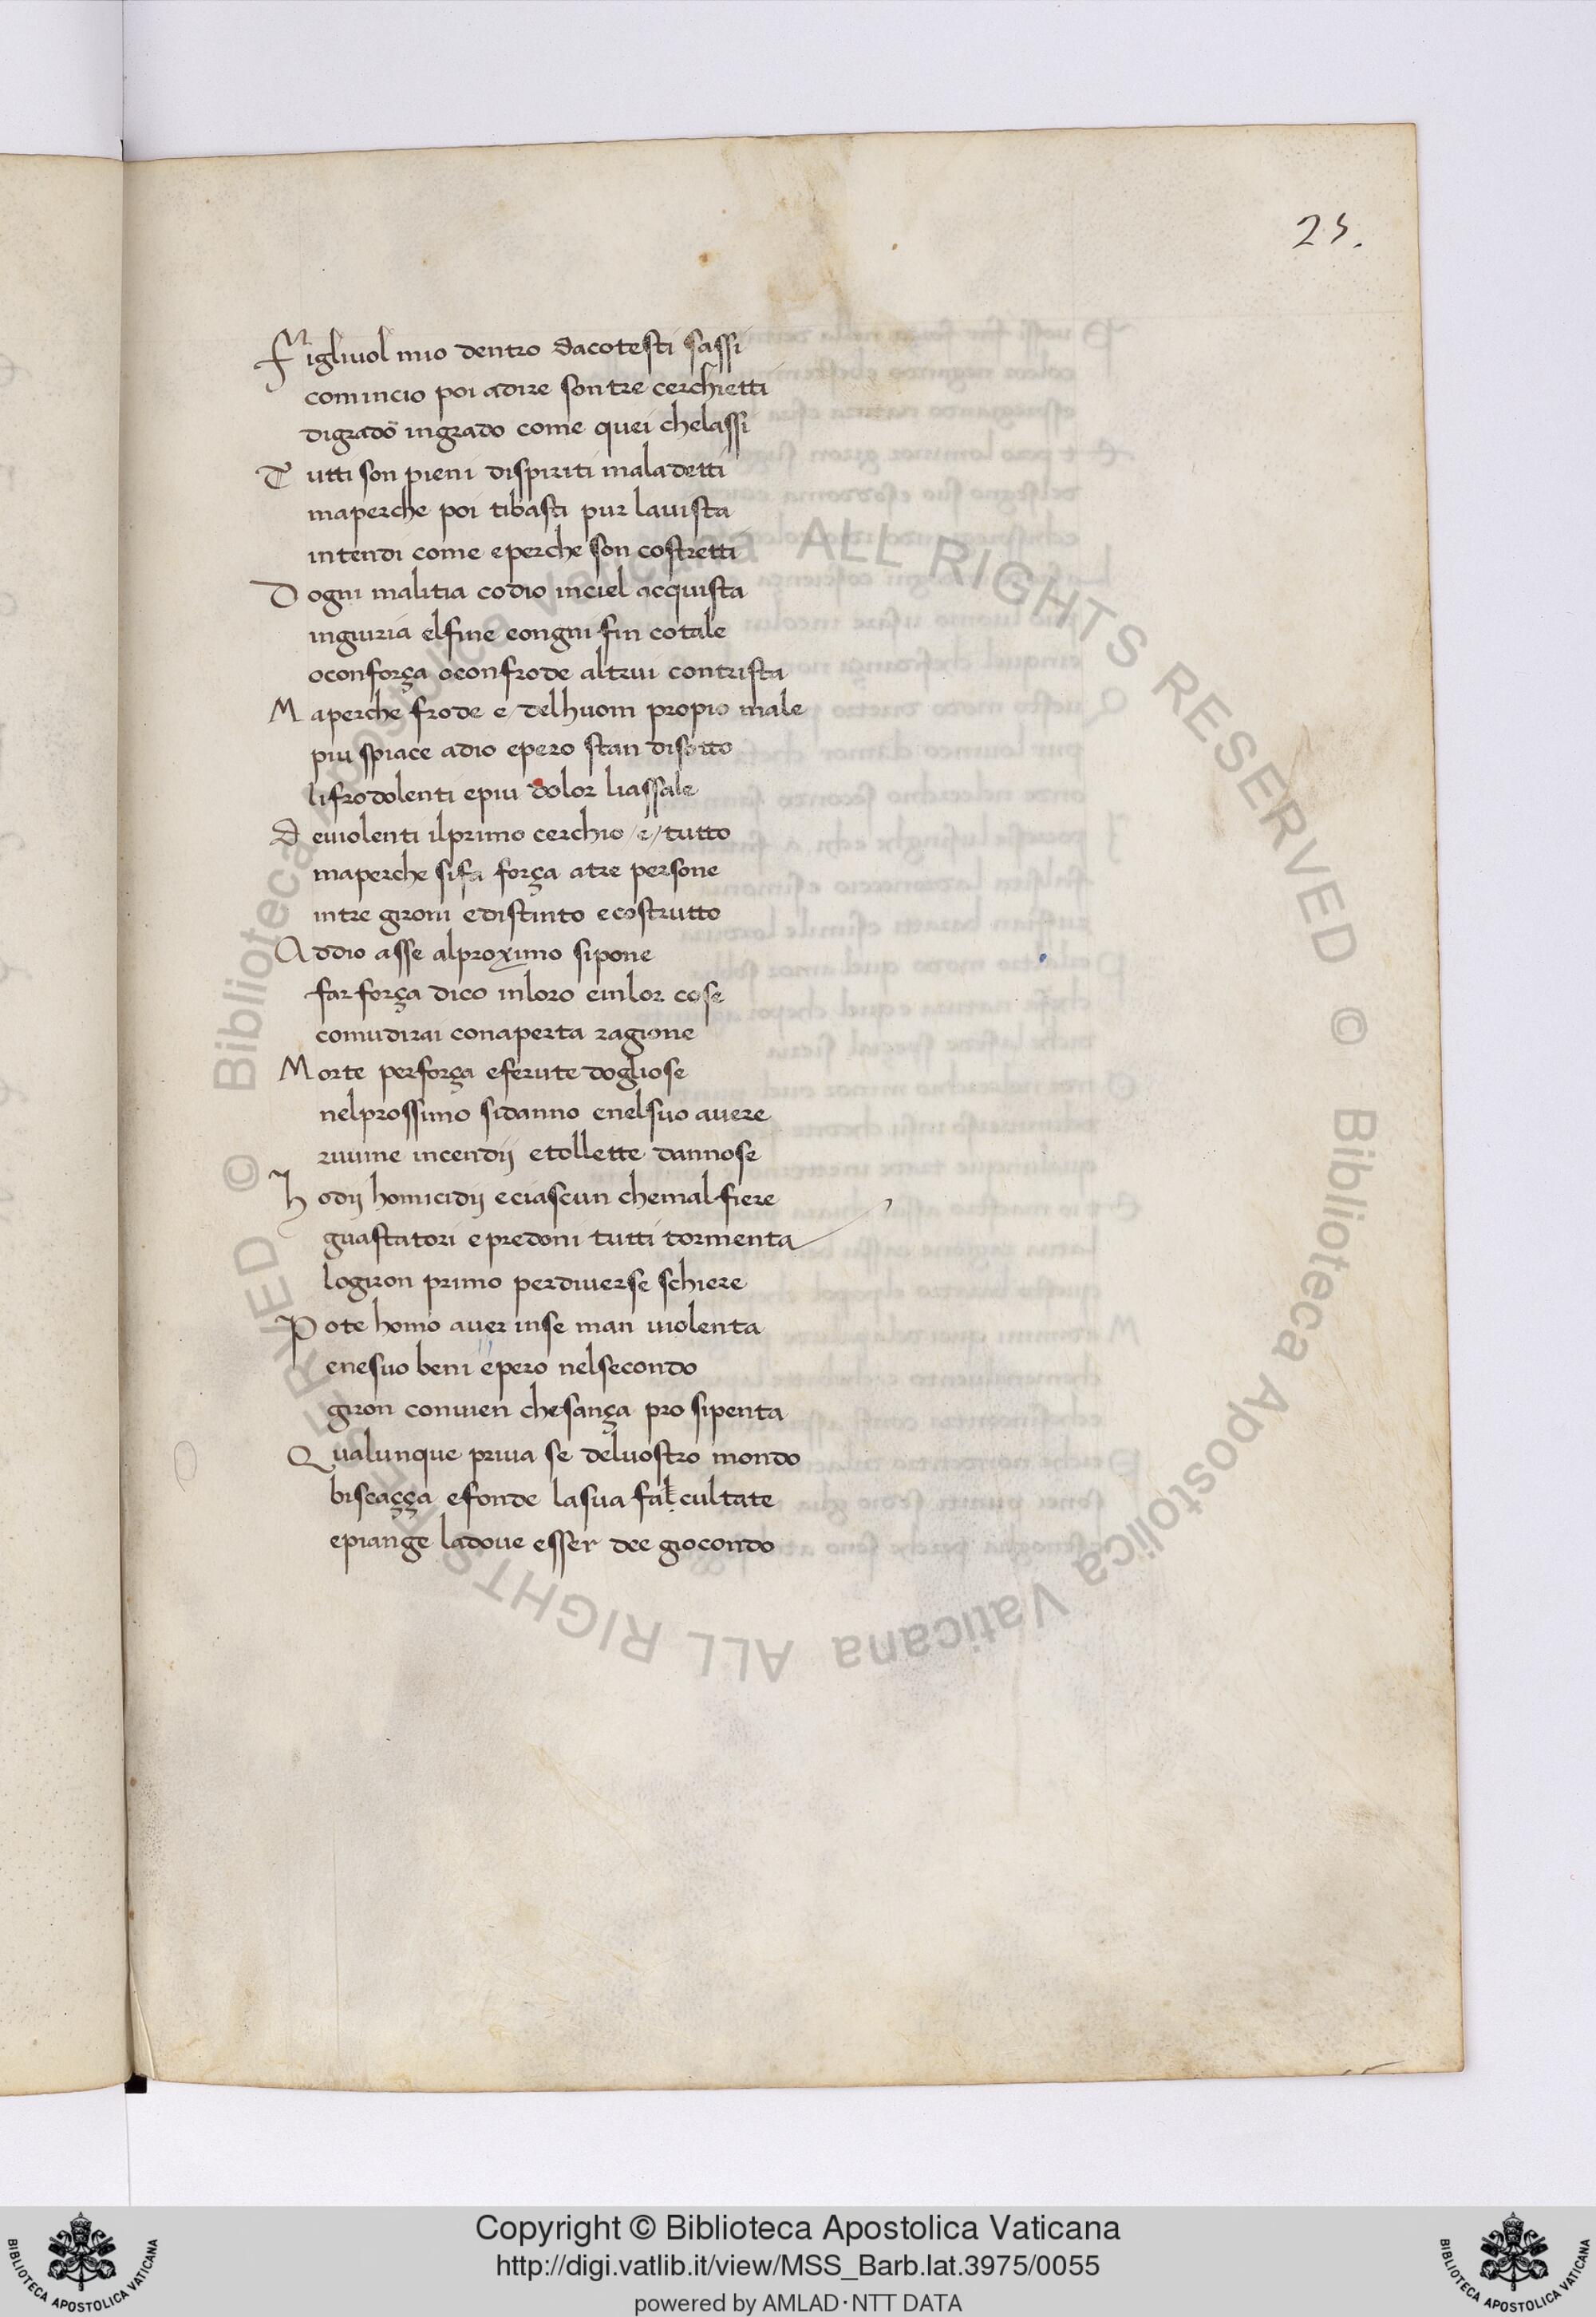 25.
Figliuol mio dentro dacotesti sassi
comincio poi adire sontre cerchietti
digrado ingrado come quei chelassi
Tutti son pieni dispiriti maladetti
maperche poi tibasti pur lauista
intendi come eperche son costretti
Dogni malitia codio inciel acquista
ingiuria elfine eongni fin cotale
oconforça oconfrode altrui contrista
Maperche frode e/ delhuom propio male
piu spiace adio epero stan disotto
lifrodolenti epiu dolor liassale
Deuiolenti ilprimo cerchio /e/ tutto
maperche sifa força atre persone
intre gironi edistinto ecostrutto
Addio asse alproximo sipone
far força dico inloro einlor cose
comudirai conaperta ragione
Morte perforça eferute dogliose
nelprossimo sidanno enelsuo auere
ruuine incendij etollette dannose
Hodij homicidij eciascun chemal fiere
guastatori epredoni tutti tormenta
logiron primo perdiuerse schiere
Pote homo auer inse man uiolenta
enesuo beni epero nelsecondo
giron conuien chesança pro sipenta
Qualunque priua se deluostro mondo
biscaçça efonde lasua falcultate
epiange ladoue esser dee giocondo
© Biblioteca Apostolica Vaticana ALL RIGHTS RESERVED © Biblioteca Apostolica Vaticana ALL RIGHTS RESERVED
Copyright © Biblioteca Apostolica Vaticana
http://digi.vatlib.it/view/MSS_Barb.lat.3975/0055
powered by AMLAD·NTT DATA
BIBLIOTECA APOSTOLICA VATICANA
BIBLIOTECA APOSTOLICA VATICANA